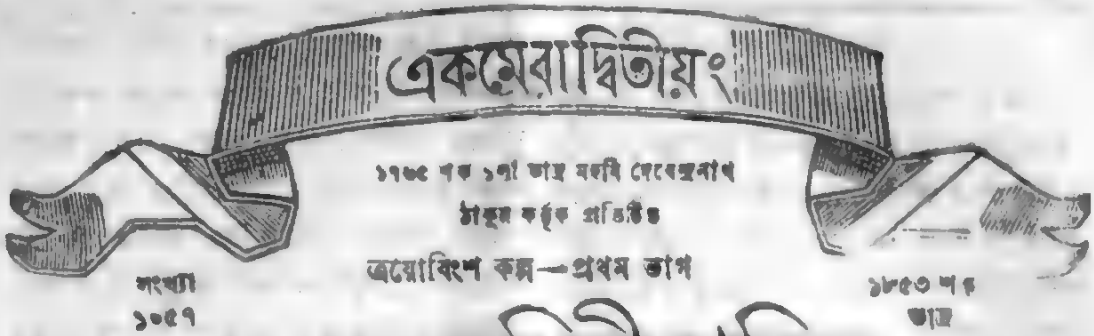 একমেবাদ্বিতীয়ং
১৭৬৫ শক ১লা ভাদ্র মহর্ষি দেবেন্দ্রনাথ
ঠাকুর কর্তৃক প্রতিষ্ঠিত
ত্রয়োবিংশ কল্প—প্রথম ভাগ
সংখ্যা
১০৫৭
১৮৫৩ শক
ভাদ্র